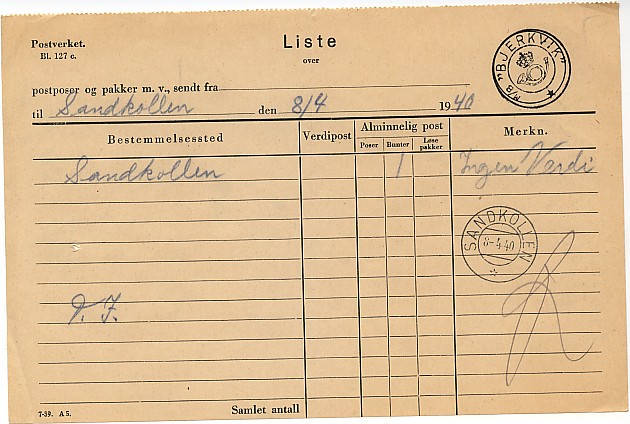 Postverket.
Bl. 127 c.
Liste
over
M/B "BJERKVIK"
postposer og pakker m. v., sendt fra
til Sandkollen den 8/4 1940
Bestemmelsessted Verdipost Alminnelig post Merkn.
Poser Bunter Løse pakker
Sandkollen 1 Ingen Verdi
SANDKOLLEN
8-4.40
7-39. A 5. Samlet antall